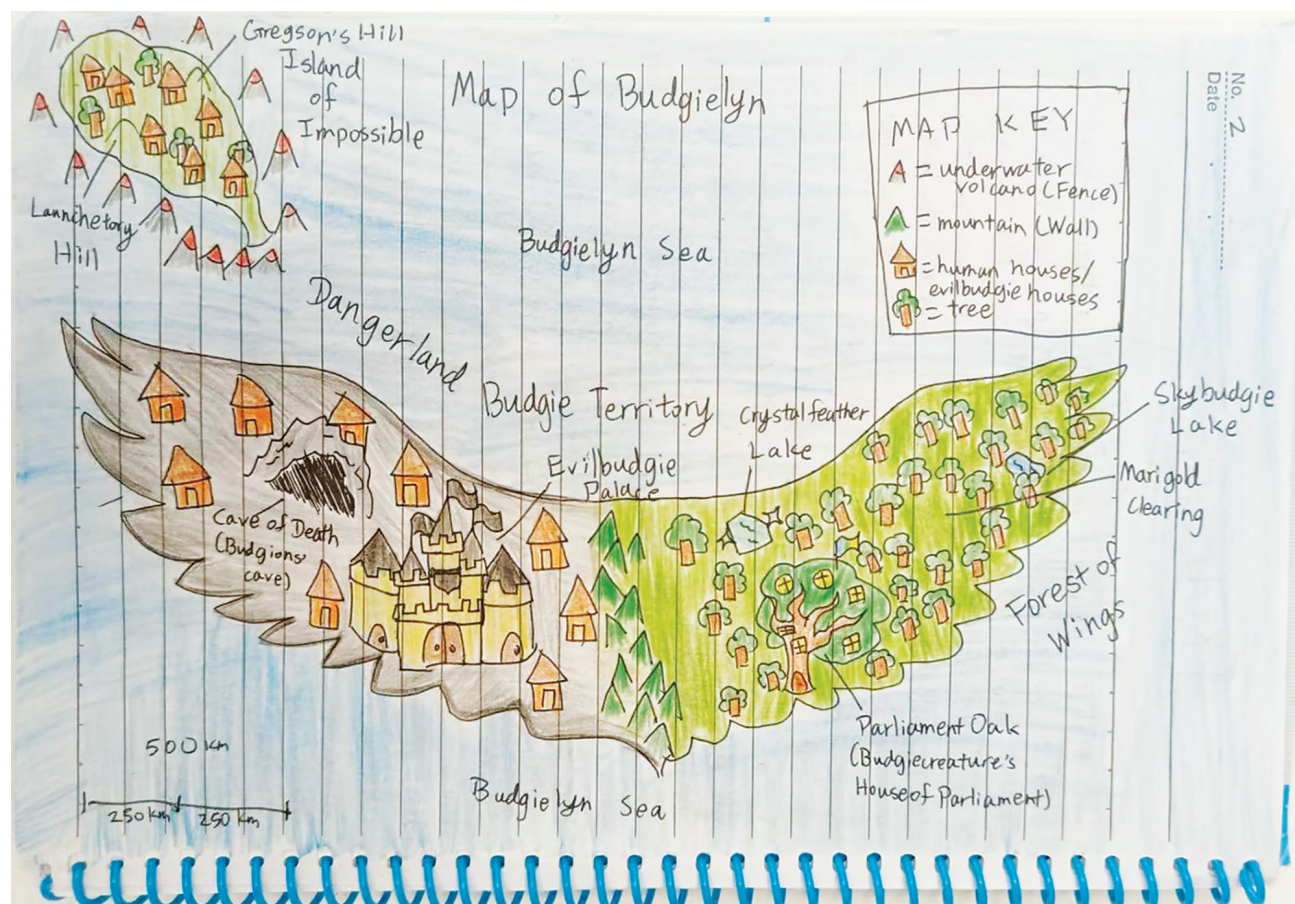 Gregson's Hill
Island
of
Impossible
Launchetory
Hill
Map of Budgielyn
No. 2
Date
MAP KEY
= underwater
volcano (Fence)
= mountain (Wall)
= human houses/
evilbudgie houses
= tree
Budgielyn Sea
Dangerland
Budgie Territory
Crystalfeather
Lake
Skybudgie
Lake
Evilbudgie
Palace
Marigold
Clearing
Cave of Death
(Budgions'
cave)
Forest of
Wings
Parliament Oak
(Budgiecreature's
House of Parliament)
500 km
250 km 250 km
Budgielyn Sea